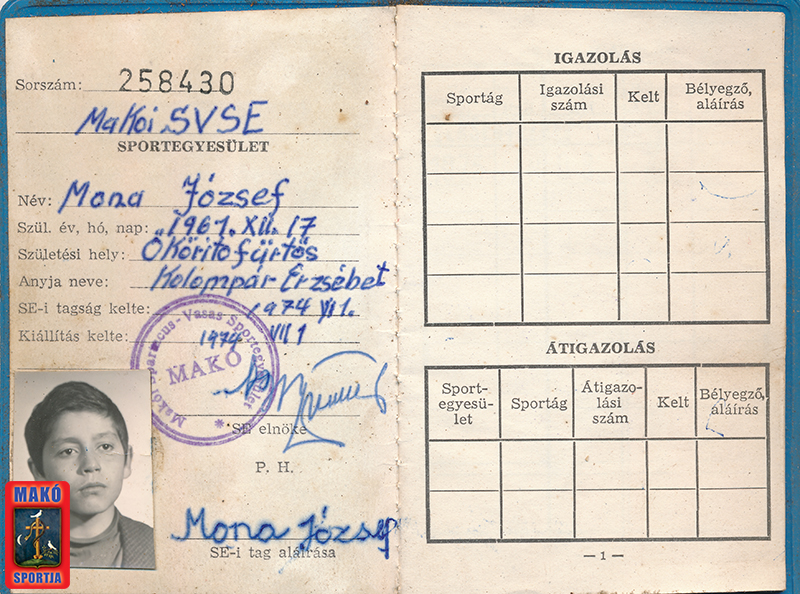 Sorszám: 258430
Makói SVSE
SPORTEGYESÜLET
Név: Mona József
Szül. év, hó, nap: „1961. XII. 17
Születési hely: Ökörítofürtős
Anyja neve: Kolompár Erzsébet
SE-i tagság kelte: 1974 VII 1.
Kiállítás kelte: 1974 VII 1
Makói Spartacus-Vasas Sportegyesület
MAKÓ
SE elnöke
P. H.
Mona József
SE-i tag aláírása
MAKÓ
SPORTJA
IGAZOLÁS
Sportág Igazolási szám Kelt Bélyegző, aláírás
ÁTIGAZOLÁS
Sport-egyesü-let Sportág Átigazo-lási szám Kelt Bélyegző, aláírás
—1—